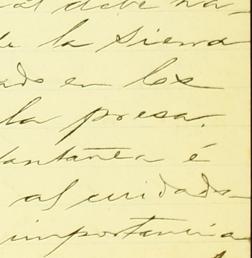 debe ha-
de la Sierra
en los
la presa.
tantanea é
al cuidado
importancia